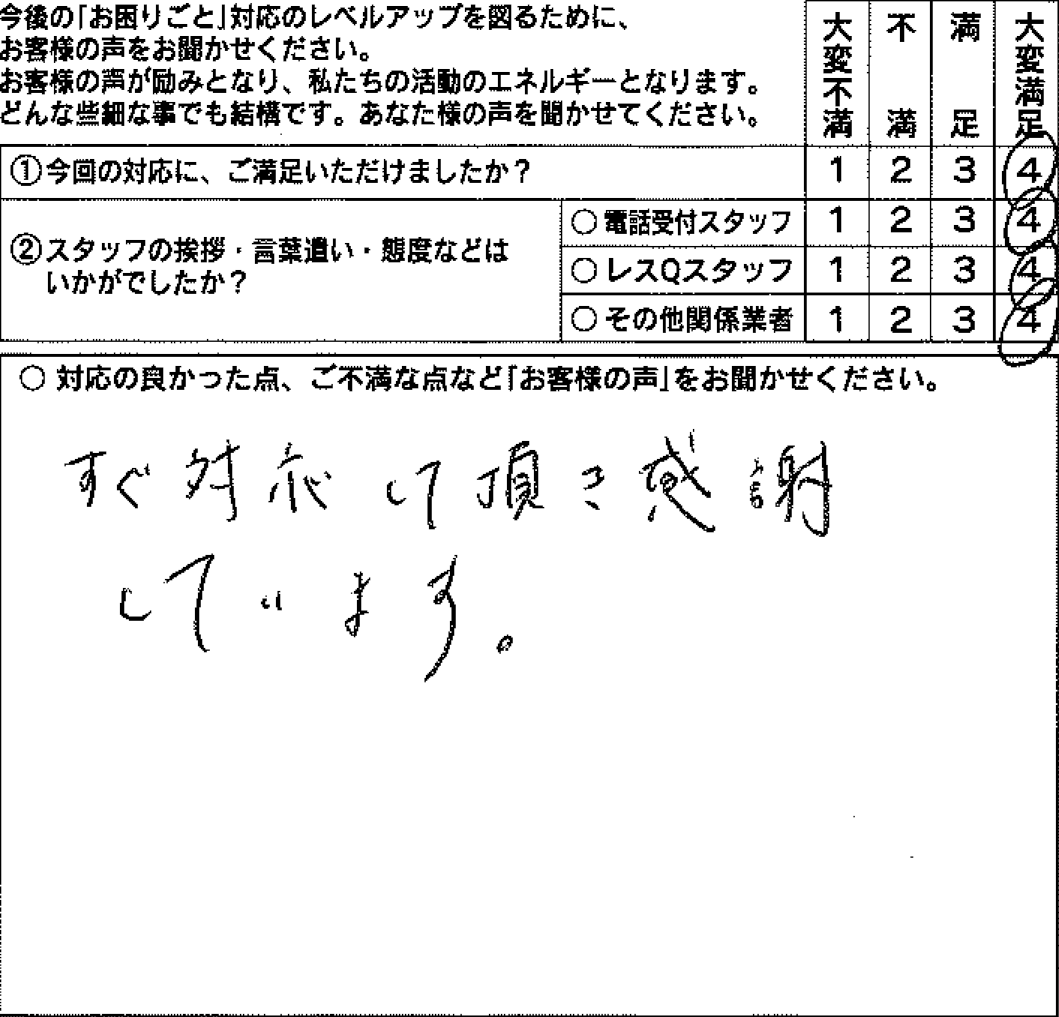 今後の「お困りごと」対応のレベルアップを図るために、
お客様の声をお聞かせください。
お客様の声が励みとなり、私たちの活動のエネルギーとなります。
どんな些細な事でも結構です。あなた様の声を聞かせてください。
大変不満 不満 満足 大変満足
①今回の対応に、ご満足いただけましたか？ 1 2 3 4
②スタッフの挨拶・言葉遣い・態度などは
いかがでしたか？
○電話受付スタッフ 1 2 3 4
○レスQスタッフ 1 2 3 4
○その他関係業者 1 2 3 4
○ 対応の良かった点、ご不満な点など「お客様の声」をお聞かせください。
すぐ対応して頂き感謝
しています。